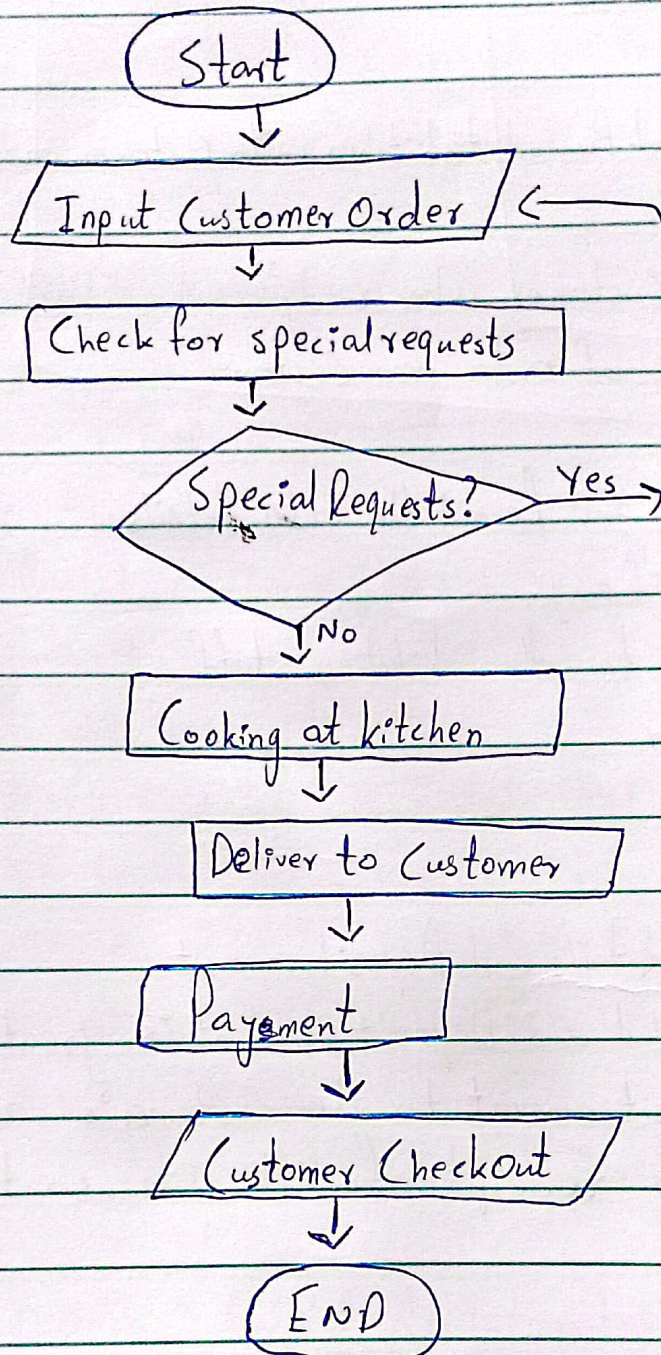 Start
Input Customer Order
Check for special requests
Special Requests?
Yes
No
Cooking at kitchen
Deliver to Customer
Payement
Customer Checkout
END